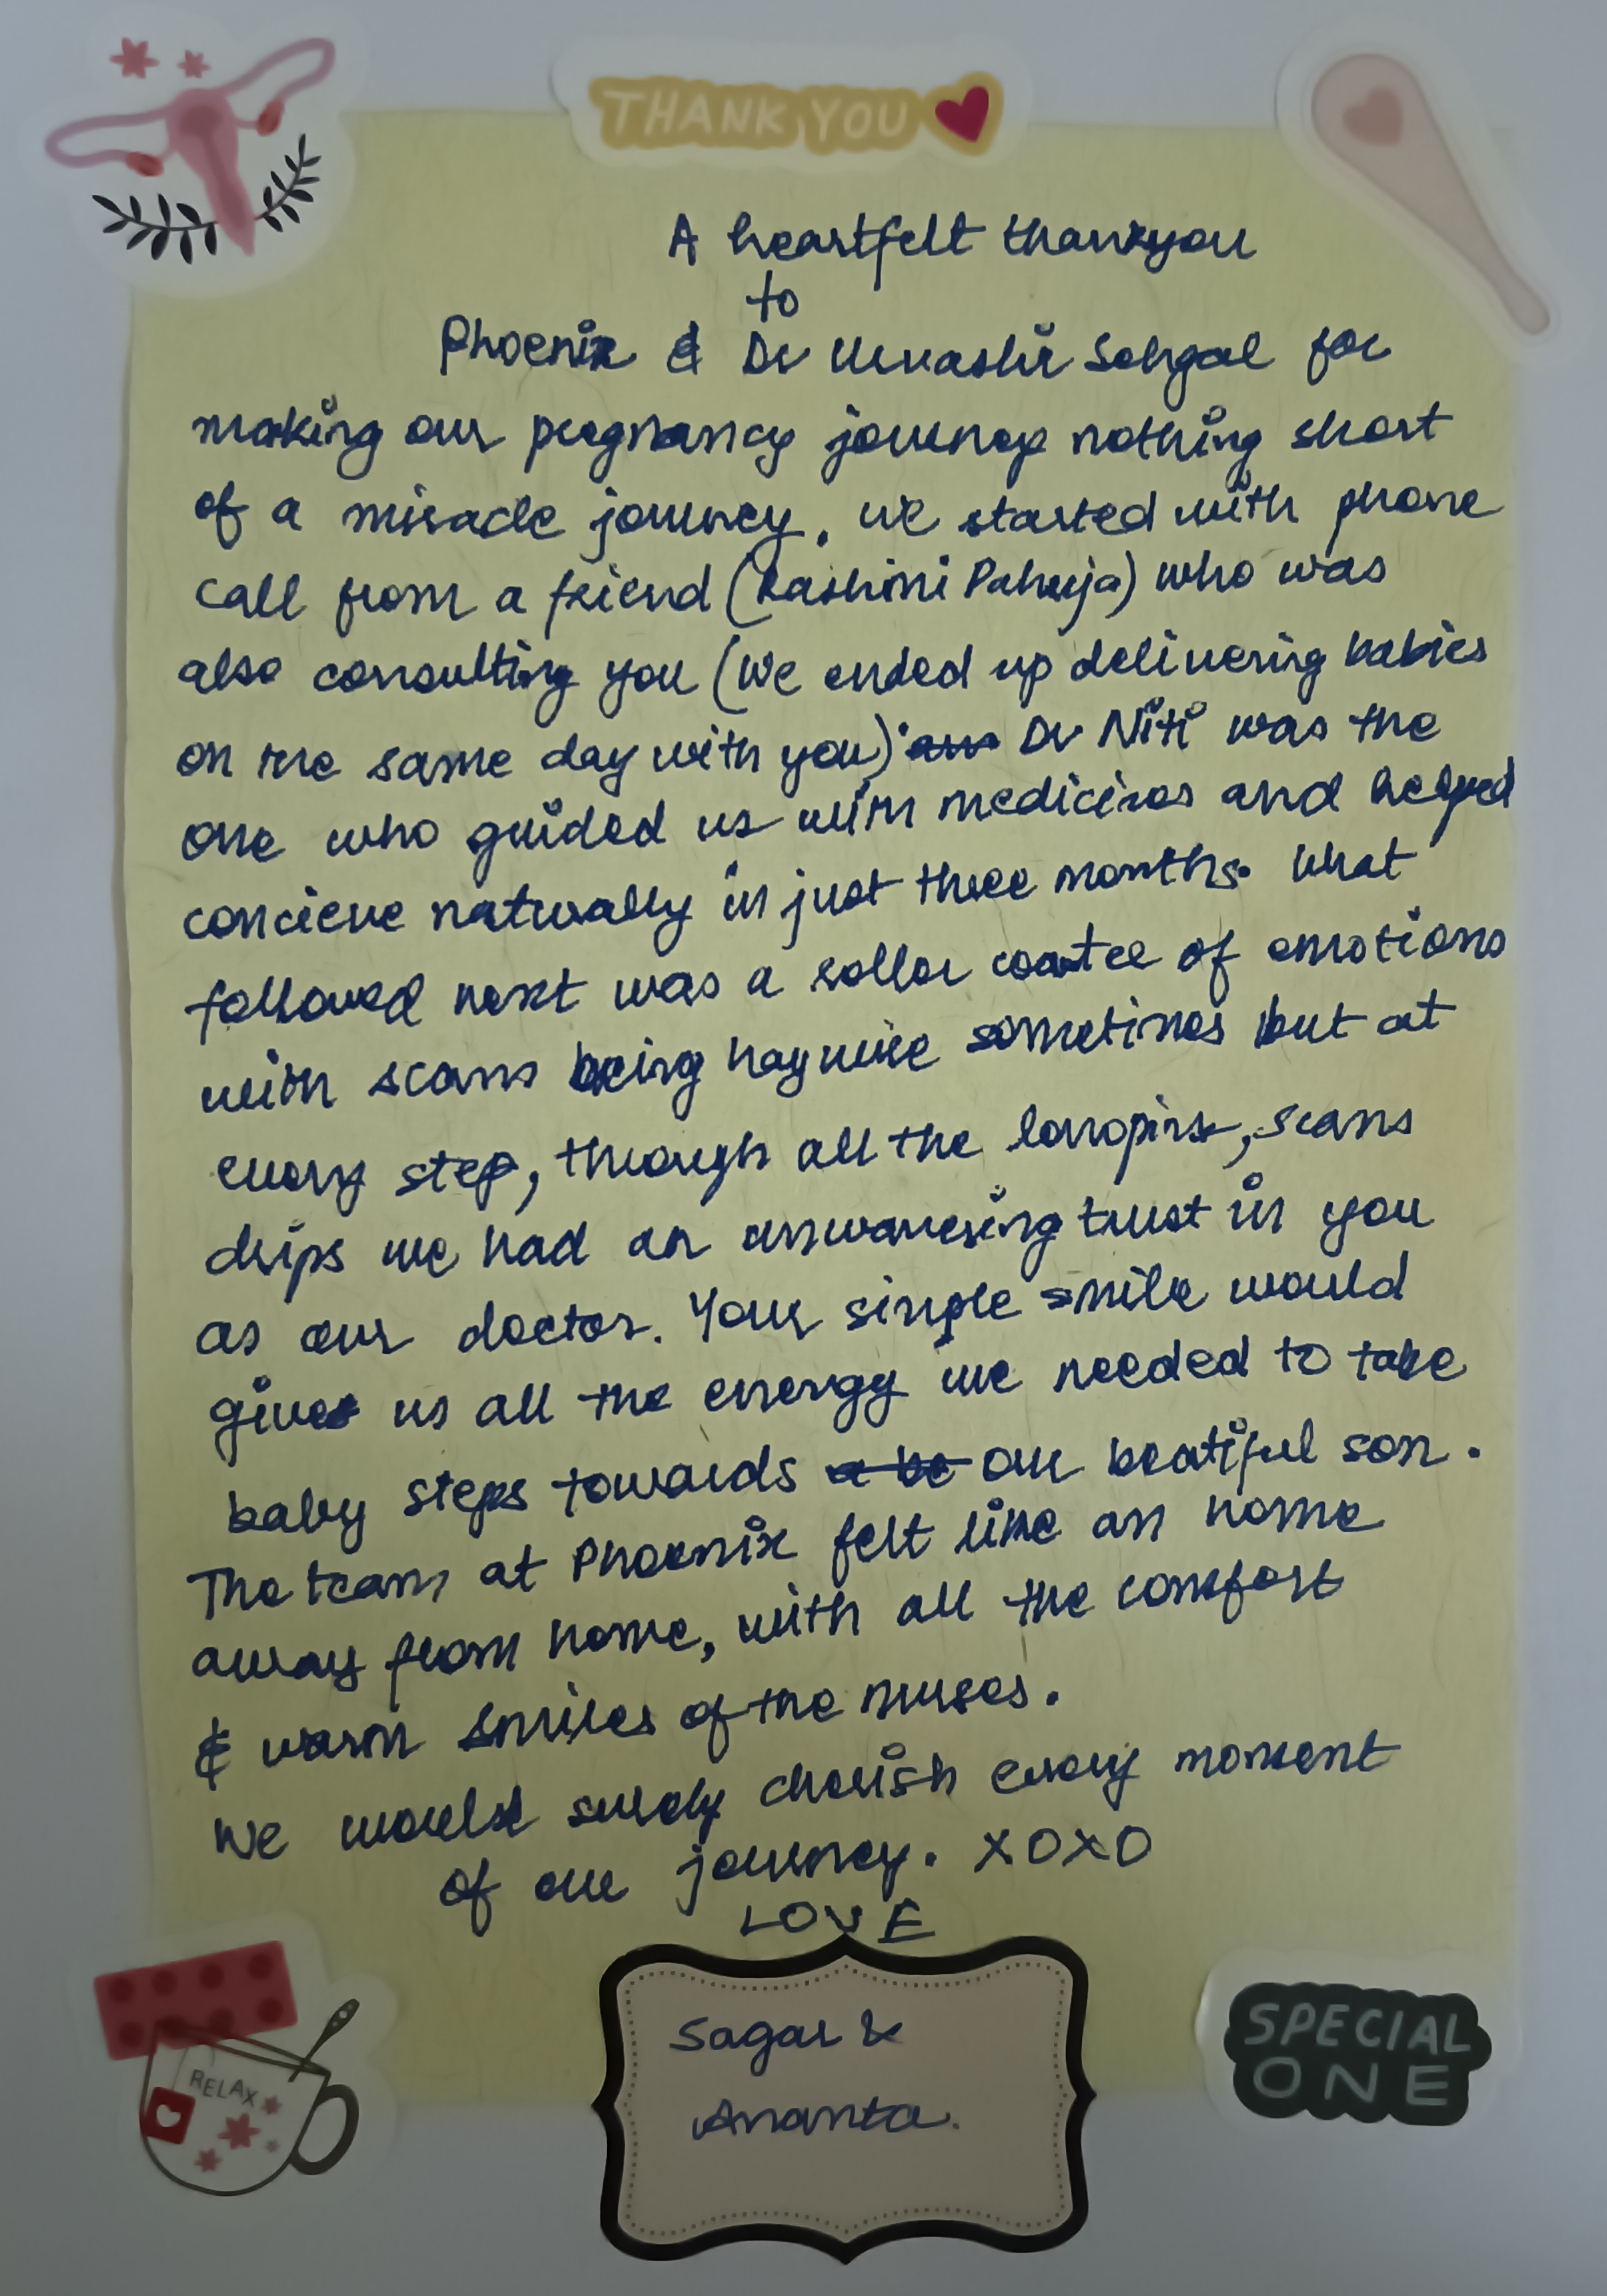 THANK YOU
A heartfelt thankyou
to
Phoenix & Dr Urvashi Sehgal for
making our pregnancy journey nothing short
of a miracle journey. We started with phone
call from a friend (Rashini Pahuja) who was
also consulting you (We ended up delivering babies
on the same day with you). Dr Niti was the
one who guided us with medicines and helped
concieve naturally in just three months. What
followed next was a roller coaster of emotions
with scans being haywire sometimes but at
every step, through all the lonopins, scans
drips we had an unwavering trust in you
as our doctor. Your simple smile would
give us all the energy we needed to take
baby steps towards our beatiful son.
The team at Phoenix felt like an home
away from home, with all the comfort
& warm smiles of the nurses.
We would surely cherish every moment
of our journey. XOXO
LOVE
Sagar &
Ananta.
RELAX
SPECIAL
ONE